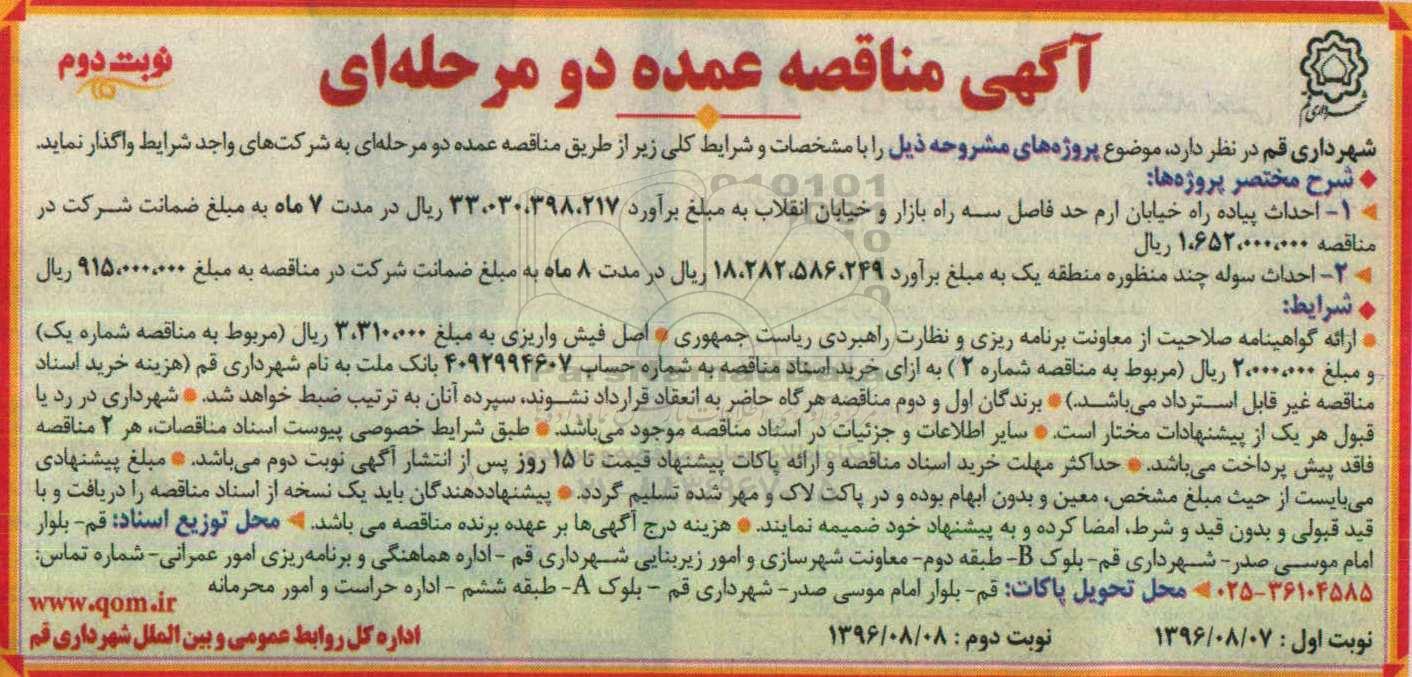 آگهی مناقصه عمده دو مرحله‌ای
نوبت دوم
شهرداری قم
شهرداری قم در نظر دارد، موضوع پروژه‌های مشروحه ذیل را با مشخصات و شرایط کلی زیر از طریق مناقصه عمده دو مرحله‌ای به شرکت‌های واجد شرایط واگذار نماید.
شرح مختصر پروژه‌ها:
۱- احداث پیاده راه خیابان ارم حد فاصل سه راه بازار و خیابان انقلاب به مبلغ برآورد ۳۳،۰۳۰،۳۹۸،۲۱۷ ریال در مدت ۷ ماه به مبلغ ضمانت شرکت در
مناقصه ۱،۶۵۲،۰۰۰،۰۰۰ ریال
۲- احداث سوله چند منظوره منطقه یک به مبلغ برآورد ۱۸،۲۸۲،۵۸۶،۲۴۹ ریال در مدت ۸ ماه به مبلغ ضمانت شرکت در مناقصه به مبلغ ۹۱۵،۰۰۰،۰۰۰ ریال
شرایط:
ارائه گواهینامه صلاحیت از معاونت برنامه ریزی و نظارت راهبردی ریاست جمهوری • اصل فیش واریزی به مبلغ ۳،۳۱۰،۰۰۰ ریال (مربوط به مناقصه شماره یک)
و مبلغ ۲،۰۰۰،۰۰۰ ریال (مربوط به مناقصه شماره ۲ ) به ازای خرید اسناد مناقصه به شماره حساب ۴۰۹۲۹۹۴۶۰۷ بانک ملت به نام شهرداری قم (هزینه خرید اسناد
مناقصه غیر قابل استرداد می‌باشد.) • برندگان اول و دوم مناقصه هرگاه حاضر به انعقاد قرارداد نشوند، سپرده آنان به ترتیب ضبط خواهد شد. • شهرداری در رد یا
قبول هر یک از پیشنهادات مختار است. • سایر اطلاعات و جزئیات در اسناد مناقصه موجود می‌باشد. • طبق شرایط خصوصی پیوست اسناد مناقصات، هر ۲ مناقصه
فاقد پیش پرداخت می‌باشد. • حداکثر مهلت خرید اسناد مناقصه و ارائه پاکات پیشنهاد قیمت تا ۱۵ روز پس از انتشار آگهی نوبت دوم می‌باشد. • مبلغ پیشنهادی
می‌بایست از حیث مبلغ مشخص، معین و بدون ابهام بوده و در پاکت لاک و مهر شده تسلیم گردد. • پیشنهاددهندگان باید یک نسخه از اسناد مناقصه را دریافت و با
قید قبولی و بدون قید و شرط، امضا کرده و به پیشنهاد خود ضمیمه نمایند. • هزینه درج آگهی‌ها بر عهده برنده مناقصه می باشد. محل توزیع اسناد: قم- بلوار
امام موسی صدر- شهرداری قم- بلوک B- طبقه دوم- معاونت شهرسازی و امور زیربنایی شهرداری قم - اداره هماهنگی و برنامه‌ریزی امور عمرانی- شماره تماس:
۰۲۵-۳۶۱۰۴۵۸۵ محل تحویل پاکات: قم- بلوار امام موسی صدر- شهرداری قم - بلوک A- طبقه ششم - اداره حراست و امور محرمانه
www.qom.ir
نوبت اول : ۱۳۹۶/۰۸/۰۷ نوبت دوم : ۱۳۹۶/۰۸/۰۸
اداره کل روابط عمومی و بین الملل شهرداری قم